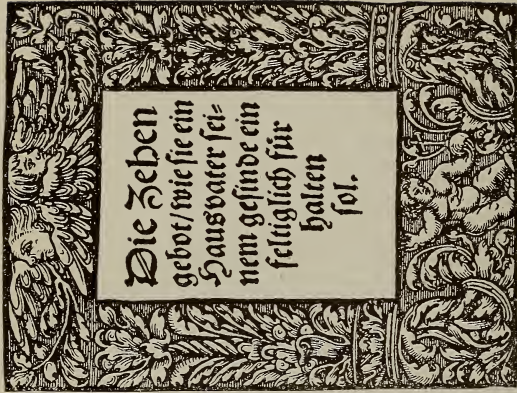 Die Zehen
gebot/wie sie ein
Hausvater sei⸗
nem gesinde ein
feltiglich für
halten
sol.